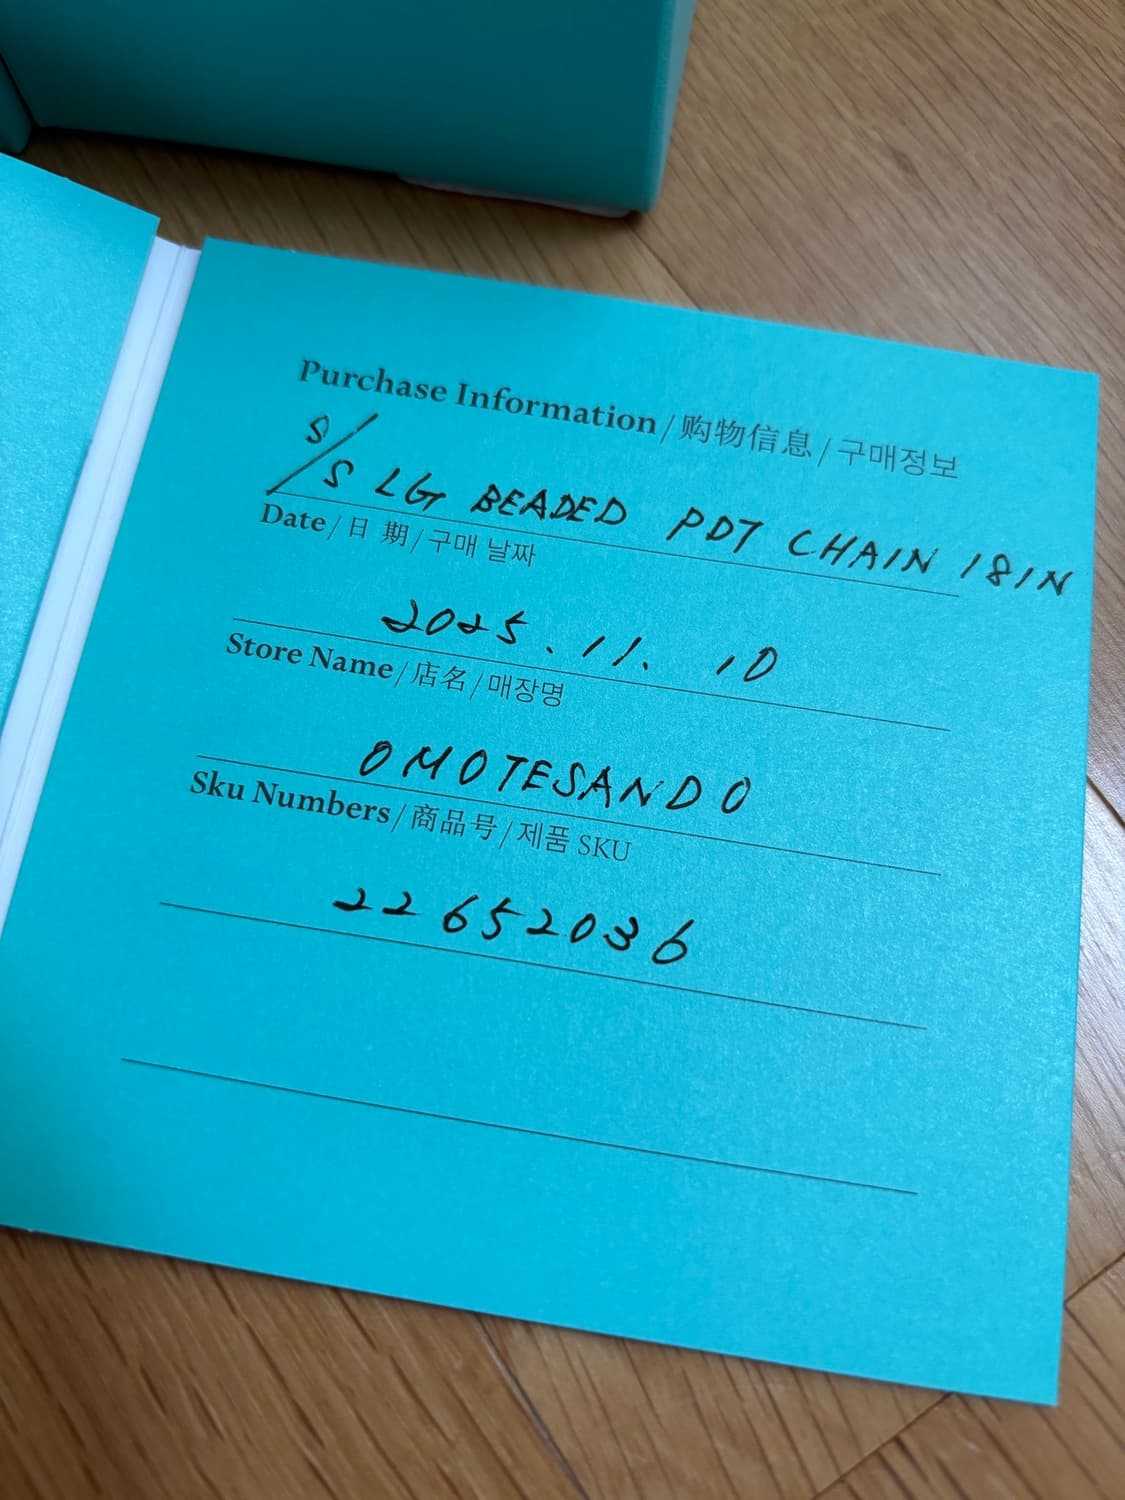 Purchase Information / 购物信息 / 구매정보
S/S LG BEADED PDT CHAIN 18IN
Date / 日 期 / 구매 날짜
2025.11.10
Store Name / 店名 / 매장명
OMOTESANDO
Sku Numbers / 商品号 / 제품 SKU
22652036